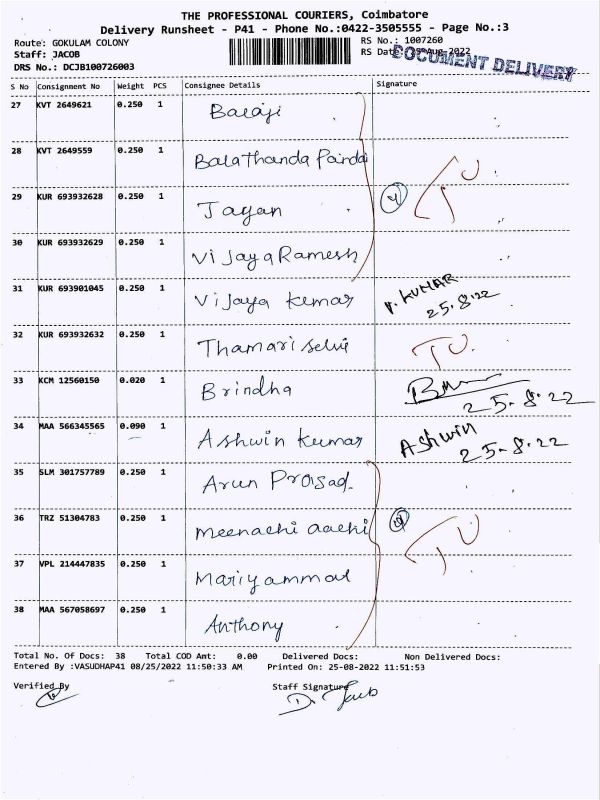 THE PROFESSIONAL COURIERS, Coimbatore
Delivery Runsheet - P41 - Phone No.:0422-3505555 - Page No.:3
Route: GOKULAM COLONY RS No.: 1007260
Staff: JACOB RS Date: 25-Aug-2022
DOCUMENT DELIVERY
DRS No.: DCJB100726003
S No Consignment No Weight PCS Consignee Details Signature
27 KVT 2649621 0.250 1 Balaji
28 KVT 2649559 0.250 1 Balathanda
29 KUR 693932628 0.250 1 Jagan 4 TU
30 KUR 693932629 0.250 1 Vijaya Ramesh
31 KUR 693901045 0.250 1 Vijaya kumar V. KUMAR
25.8.22
32 KUR 693932632 0.250 1 Thamari selvi TU.
33 KCM 12560150 0.020 1 Brindha
25.8.22
34 MAA 566345565 0.090 1 Ashwin kumar Ashwin
25-8.22
35 SLM 301757789 0.250 1 Arun Prasad
36 TRZ 51304783 0.250 1 Meenachi aachi TU
37 VPL 214447835 0.250 1 Mariyammal
38 MAA 567058697 0.250 1 Anthony
Total No. Of Docs: 38 Total COD Amt: 0.00 Delivered Docs: Non Delivered Docs:
Entered By :VASUDHAP41 08/25/2022 11:50:33 AM Printed On: 25-08-2022 11:51:53
Verified By Staff Signature